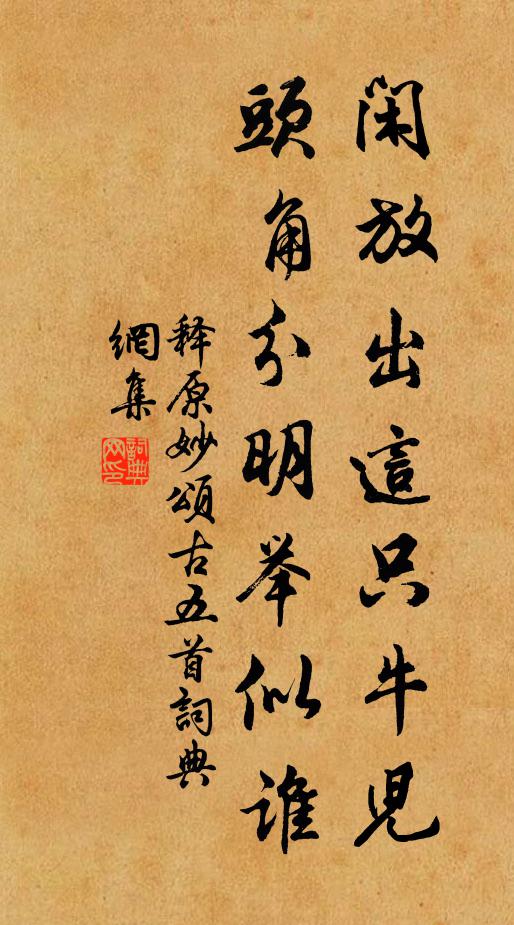 闲放出這只牛児
頭角分明举似谁
释原妙頌古五首詞典
網集
詞典
网印